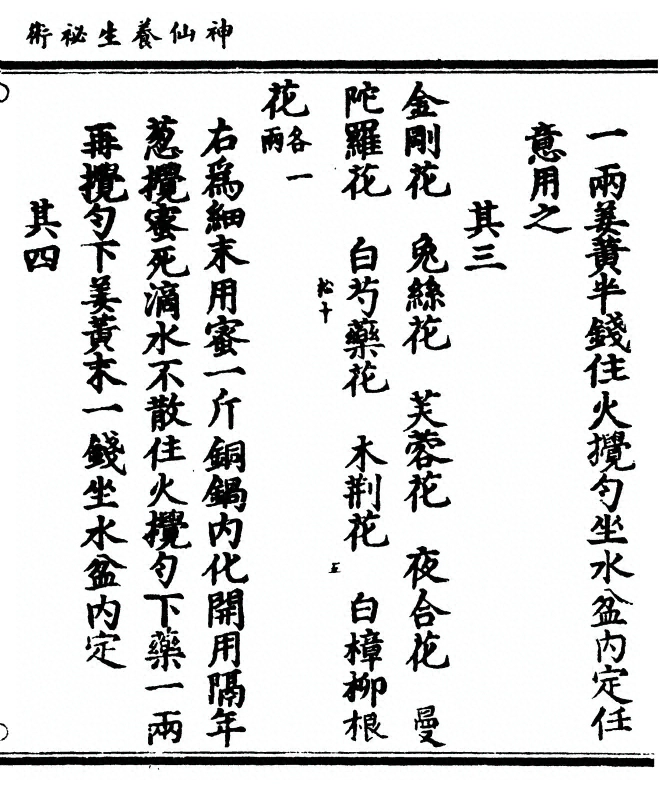 神仙養生祕術
一兩姜黃半錢住火攪勻坐水盆内定任
意用之
其三
金剛花　兔絲花　芙蓉花　夜合花　曼
陀羅花　白芍藥花　木荆花　白樟柳根
松十
五
花各一兩
右爲細末用蜜一斤銅鍋内化開用隔年
葱攪蜜死滴水不散住火攪勻下藥一兩
再攪勻下姜黃末一錢坐水盆内定
其四